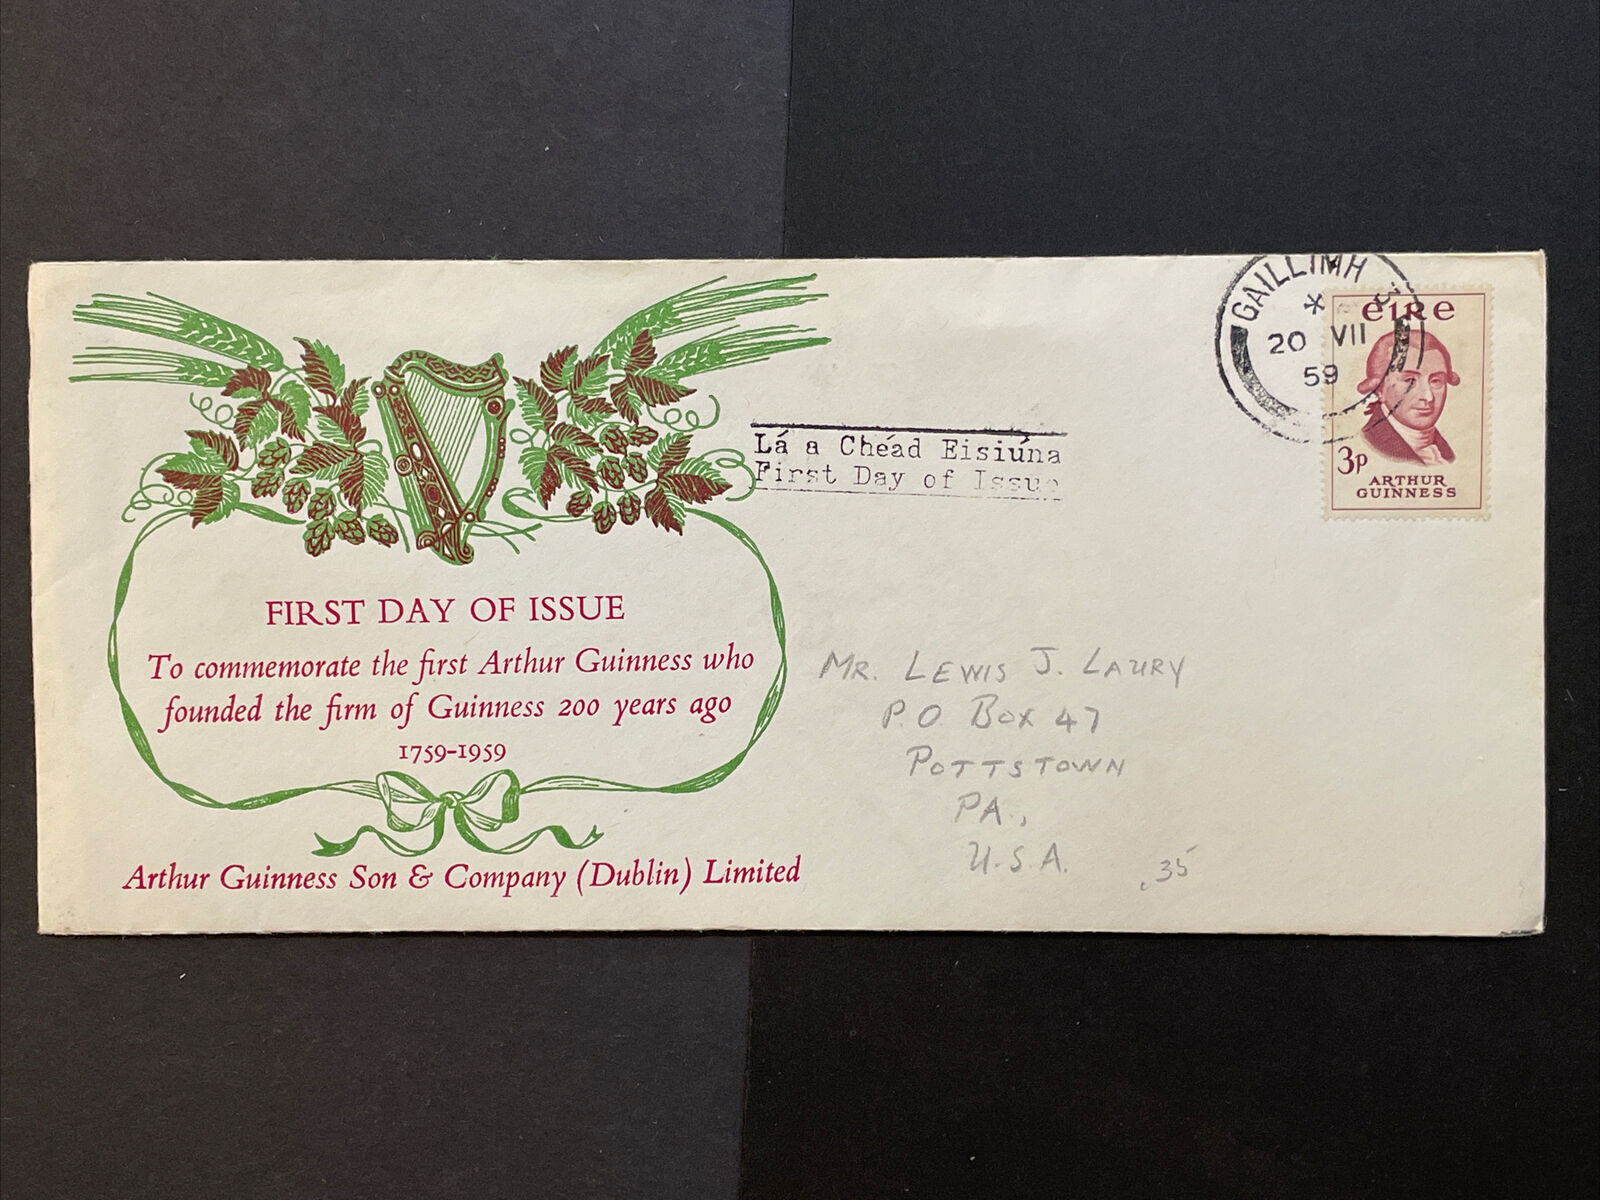 GAILLIMH
*
20 VII
59
éIRe
3p
ARTHUR
GUINNESS
Lá a Chéad Eisiúna
First Day of Issue
FIRST DAY OF ISSUE
To commemorate the first Arthur Guinness who
founded the firm of Guinness 200 years ago
1759-1959
Arthur Guinness Son & Company (Dublin) Limited
MR. LEWIS J. LAURY
P.O. BOX 47
POTTSTOWN
PA.,
U.S.A.
.35